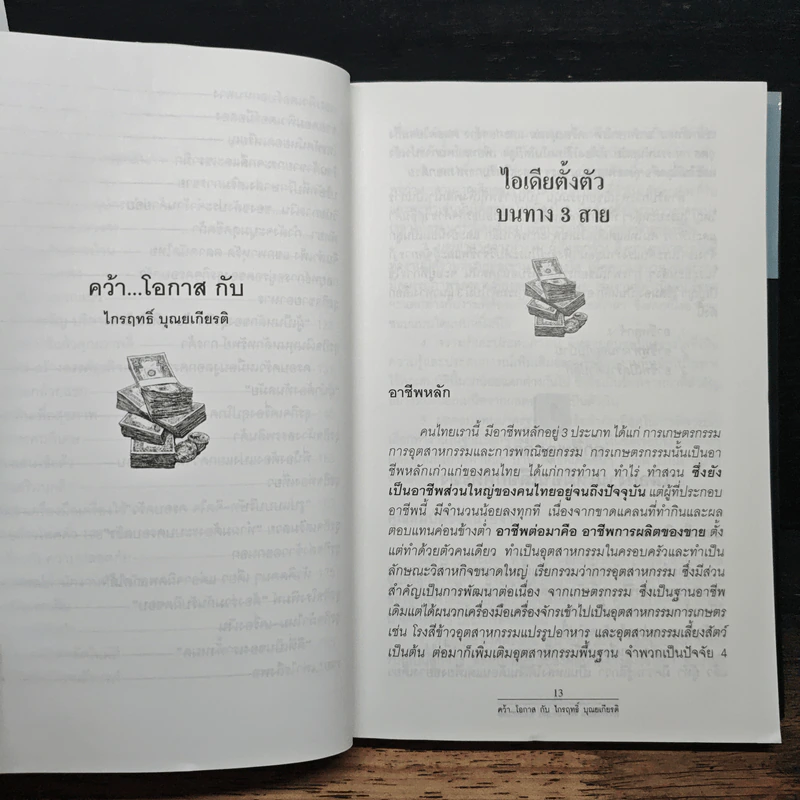 คว้า...โอกาส กับ
ไกรฤทธิ์ บุณยเกียรติ
ไอเดียตั้งตัว
บนทาง 3 สาย
อาชีพหลัก
คนไทยเรานี้ มีอาชีพหลักอยู่ 3 ประเภท ได้แก่ การเกษตรกรรม
การอุตสาหกรรมและการพาณิชยกรรม การเกษตรกรรมนั้นเป็นอา
ชีพหลักเก่าแก่ของคนไทย ได้แก่การทำนา ทำไร่ ทำสวน ซึ่งยัง
เป็นอาชีพส่วนใหญ่ของคนไทยอยู่จนถึงปัจจุบัน แต่ผู้ที่ประกอบ
อาชีพนี้ มีจำนวนน้อยลงทุกที เนื่องจากขาดแคลนที่ทำกินและผล
ตอบแทนค่อนข้างต่ำ อาชีพต่อมาคือ อาชีพการผลิตของขาย ตั้ง
แต่ทำด้วยตัวคนเดียว ทำเป็นอุตสาหกรรมในครอบครัวและทำเป็น
ลักษณะวิสาหกิจขนาดใหญ่ เรียกรวมว่าการอุตสาหกรรม ซึ่งมีส่วน
สำคัญเป็นการพัฒนาต่อเนื่อง จากเกษตรกรรม ซึ่งเป็นฐานอาชีพ
เดิมแต่ได้ผนวกเครื่องมือเครื่องจักรเข้าไปเป็นอุตสาหกรรมการเกษตร
เช่น โรงสีข้าวอุตสาหกรรมแปรรูปอาหาร และอุตสาหกรรมเลี้ยงสัตว์
เป็นต้น ต่อมาก็เพิ่มเติมอุตสาหกรรมพื้นฐาน จำพวกเป็นปัจจัย 4
13
คว้า...โอกาส กับ ไกรฤทธิ์ บุณยเกียรติ